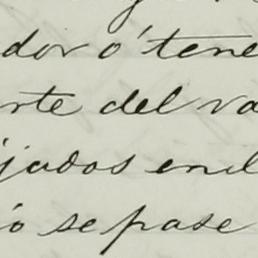 dor ó tene
rte del va
jados en el
ó se pase